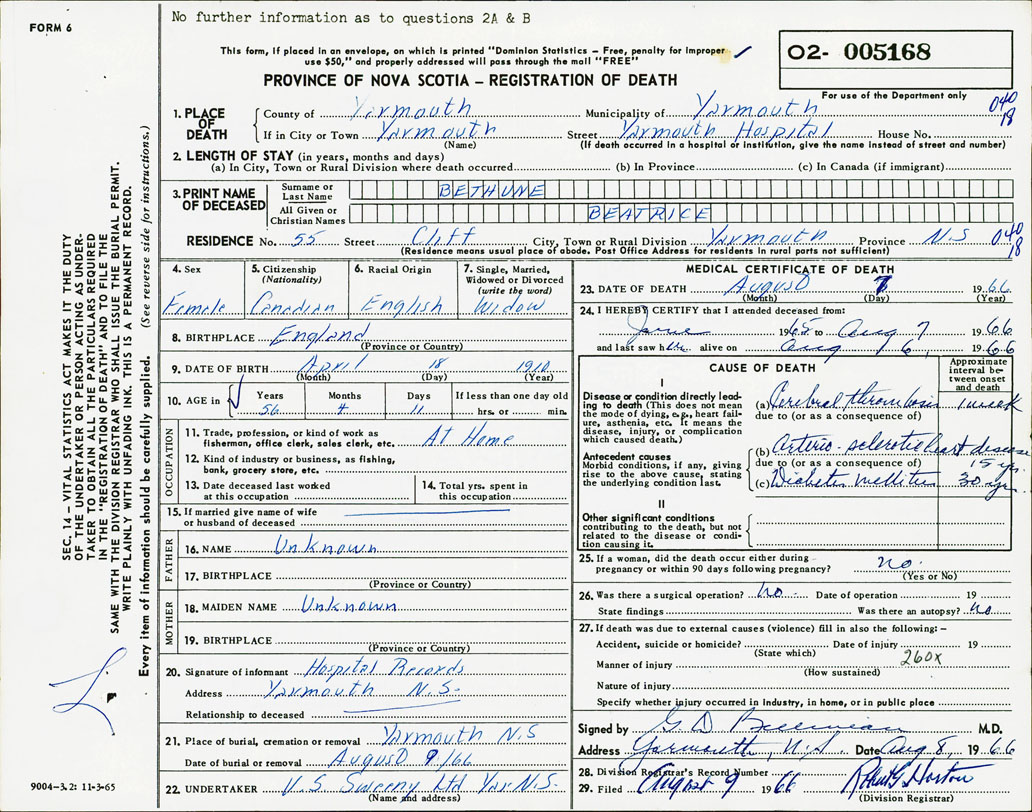 No further information as to questions 2A & B
FORM 6
This form, if placed in an envelope, on which is printed "Dominion Statistics – Free, penalty for improper
use $50," and properly addressed will pass through the mail "FREE"
O2- 005168
For use of the Department only
PROVINCE OF NOVA SCOTIA – REGISTRATION OF DEATH
040
18
1. PLACE OF DEATH
County of Yarmouth Municipality of Yarmouth
If in City or Town Yarmouth Street Yarmouth Hospital House No.
(Name) (If death occurred in a hospital or institution, give the name instead of street and number)
2. LENGTH OF STAY (in years, months and days)
(a) In City, Town or Rural Division where death occurred (b) In Province (c) In Canada (if immigrant)
3. PRINT NAME OF DECEASED
Surname or Last Name BETHUNE
All Given or Christian Names BEATRICE
RESIDENCE No. 55 Street Cliff City, Town or Rural Division Yarmouth Province N.S 040
18
(Residence means usual place of abode. Post Office Address for residents in rural parts not sufficient)
4. Sex
Female
5. Citizenship
(Nationality)
Canadian
6. Racial Origin
English
7. Single, Married,
Widowed or Divorced
(write the word)
Widow
8. BIRTHPLACE England
(Province or Country)
9. DATE OF BIRTH April 18 1910
(Month) (Day) (Year)
10. AGE in
Years Months Days If less than one day old
56 4 11 hrs. or min.
OCCUPATION
11. Trade, profession, or kind of work as
fisherman, office clerk, sales clerk, etc. At Home
12. Kind of industry or business, as fishing,
bank, grocery store, etc.
13. Date deceased last worked
at this occupation
14. Total yrs. spent in
this occupation
15. If married give name of wife
or husband of deceased
FATHER
16. NAME Unknown
17. BIRTHPLACE
(Province or Country)
MOTHER
18. MAIDEN NAME Unknown
19. BIRTHPLACE
(Province or Country)
20. Signature of informant Hospital Records
Address Yarmouth N.S.
Relationship to deceased
21. Place of burial, cremation or removal Yarmouth N.S
Date of burial or removal August 9/66
22. UNDERTAKER V.S. Sweeny Ltd Yar N.S.
(Name and address)
MEDICAL CERTIFICATE OF DEATH
23. DATE OF DEATH August 7 1966
(Month) (Day) (Year)
24. I HEREBY CERTIFY that I attended deceased from:
June 1965 to Aug 7 1966
and last saw her alive on Aug 6, 1966
CAUSE OF DEATH
Approximate
interval be-
tween onset
and death
I
Disease or condition directly lead-
ing to death (This does not mean
the mode of dying, e.g., heart fail-
ure, asthenia, etc. It means the
disease, injury, or complication
which caused death.)
(a) Cerebral thrombosis 1 week
due to (or as a consequence of)
Antecedent causes
Morbid conditions, if any, giving
rise to the above cause, stating
the underlying condition last.
(b) Arterio-sclerotic heart disease
due to (or as a consequence of) 15 yrs.
(c) Diabetes mellitus 30 yrs.
II
Other significant conditions
contributing to the death, but not
related to the disease or condi-
tion causing it.
25. If a woman, did the death occur either during
pregnancy or within 90 days following pregnancy? no.
(Yes or No)
26. Was there a surgical operation? no Date of operation 19
State findings Was there an autopsy? no
27. If death was due to external causes (violence) fill in also the following: –
Accident, suicide or homicide? Date of injury 19
(State which) 260X
Manner of injury
(How sustained)
Nature of injury
Specify whether injury occurred in industry, in home, or in public place
Signed by G. D. M.D.
Address Yarmouth, N.S. Date Aug 8, 1966
28. Division Registrar's Record Number
29. Filed August 9 1966 Robert G Horton
(Division Registrar)
SEC. 14 – VITAL STATISTICS ACT MAKES IT THE DUTY
OF THE UNDERTAKER OR PERSON ACTING AS UNDER-
TAKER TO OBTAIN ALL THE PARTICULARS REQUIRED
IN THE "REGISTRATION OF DEATH" AND TO FILE THE
SAME WITH THE DIVISION REGISTRAR WHO SHALL ISSUE THE BURIAL PERMIT.
WRITE PLAINLY WITH UNFADING INK. THIS IS A PERMANENT RECORD.
Every item of information should be carefully supplied. (See reverse side for instructions.)
9004-3.2: 11-3-65